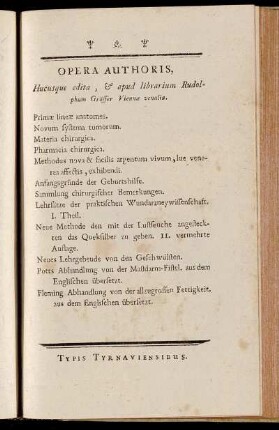 OPERA AUTHORIS,
Hucusque edita, & apud librarium Rudol-
phum Gräffer Viennæ venalia.
Primæ lineæ anatomes.
Novum systema tumorum.
Materia chirurgica.
Pharmacia chirurgica.
Methodus nova & facilis argentum vivum, lue vene-
rea affectis, exhibendi.
Anfangsgründe der Geburtshilfe.
Sammlung chirurgischer Bemerkungen.
Lehrsätze der praktischen Wundarzneywissenschaft.
I. Theil.
Neue Methode den mit der Lustseuche angesteck-
ten das Queksilber zu geben. II. vermehrte
Auflage.
Neues Lehrgebeude von den Geschwülsten.
Potts Abhandlung von der Mastdarm-Fistel, aus dem
Englischen übersetzt.
Fleming Abhandlung von der allzugrossen Fettigkeit,
aus dem Englischen übersetzt.
TYPIS TYRNAVIENSIBUS.